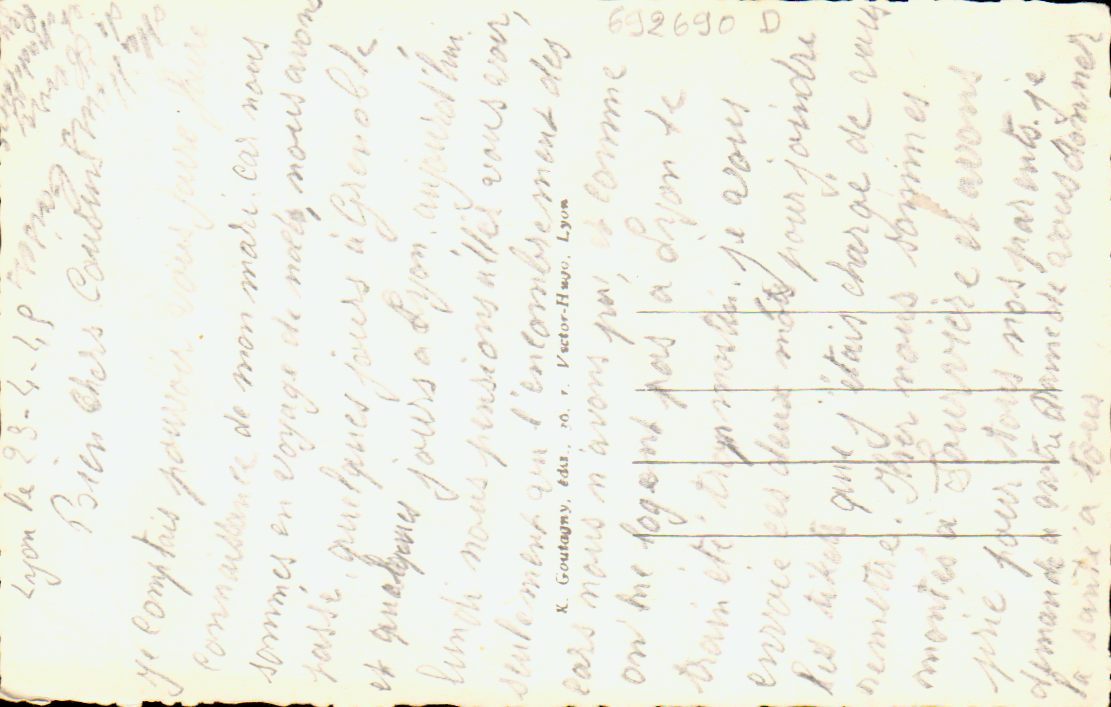 Lyon le 23-4-49
Bien chers Cousins
Je comptais pouvoir vous faire faire
connaissance de mon mari. car nous
sommes en voyage de noces, nous avons
passé quelques jours à Grenoble
et quelques jours a Lyon. aujourd'hui
lundi nous pensions aller vous voir,
seulement vu l'encombrement des
cars nous n'avons pu, et comme
on ne logent pas à Lyon le
train été trop matin. je vous
envoie ces deux mots pour joindre
les que j'étais chargé de vous
remettre. Hier nous sommes
montés à Fourvière et avons
prié pour tous nos parents. je
demande à notre Dame de vous donner
la santé à tous
K. Goutagny, édit., 70, r. Victor-Hugo, Lyon
692690 D